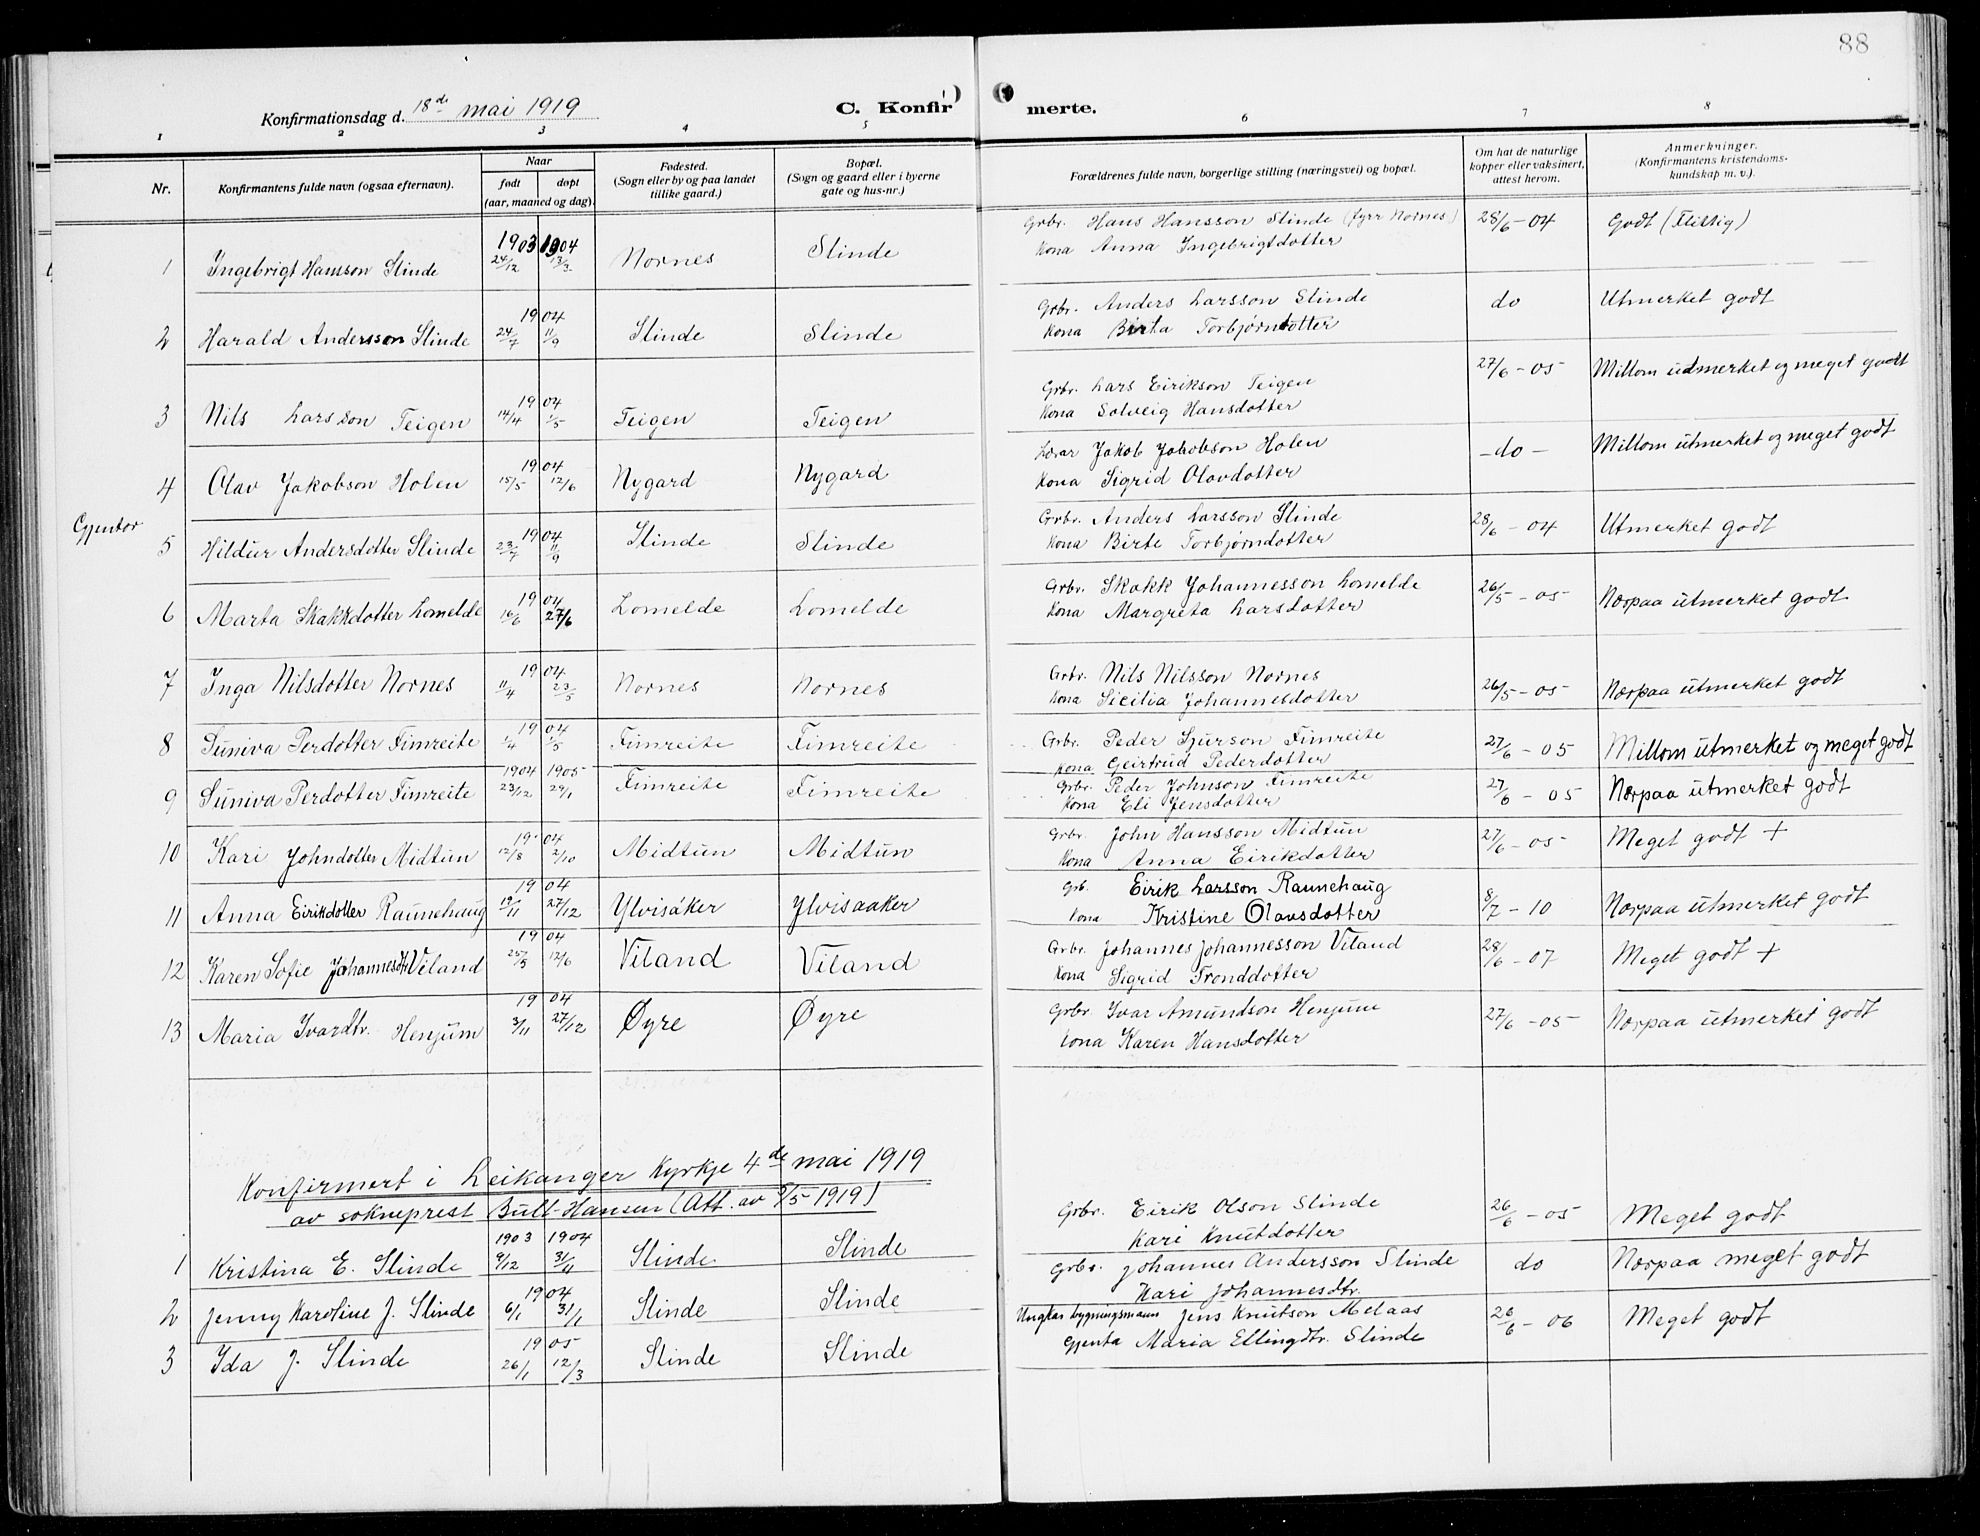 88
Konfirmationsdag d. 18de mai 1919 C. Konfirmerte.
1 2 3 4 5 6 7 8
Nr. Konfirmantens fulde navn (ogsaa efternavn). Naar født døpt (aar, maaned og dag). Fødested. (Sogn eller by og paa landet tillike gaard.) Bopæl. (Sogn og gaard eller i byerne gate og hus-nr.) Forældrenes fulde navn, borgerlige stilling (næringsvei) og bopæl. Om hat de naturlige kopper eller vaksinert, attest herom. Anmerkninger. (Konfirmantens kristendoms-kundskap m. v.).
1 Ingebrigt Hansson Slinde 1903 24/12 1904 13/3 Nornes Slinde Grbr. Hans Hansson Slinde (fyrr Nornes) 28/6 - 04 Godt (Flittig)
Kona Anna Ingebrigtdotter
2 Harald Andersson Slinde 1904 24/7 11/9 Slinde Slinde Grbr. Anders Larsson Slinde do Utmerket godt
Kona Birta Torbjørndotter
3 Nils Larsson Teigen 1904 14/4 1/5 Teigen Teigen Grbr. Lars Eirikson Teigen 27/6 - 05 Millom utmerket og meget godt
Kona Solveig Hansdotter
4 Olav Jakobson Holen 1904 15/5 12/6 Nygard Nygard Lærar Jakob Jakobson Holen - do - Millom utmerket og meget godt
Kona Sigrid Olavdotter
Gjentor
5 Hildur Andersdotter Slinde 1904 23/7 11/9 Slinde Slinde Grbr. Anders Larsson Slinde 28/6 - 04 Utmerket godt
Kona Birte Torbjørndotter
6 Marta Skakkdotter Lomelde 1904 16/6 27/6 Lomelde Lomelde Grbr. Skakk Johannesson Lomelde 26/5 - 05 Nærpaa utmerket godt
Kona Margreta Larsdotter
7 Inga Nilsdotter Nornes 1904 11/4 23/5 Nornes Nornes Grbr. Nils Nilsson Nornes 26/5 - 05 Nærpaa utmerket godt
Kona Sicilia Johannesdotter
8 Suniva Perdotter Fimreite 1904 1/4 1/5 Fimreite Fimreite Grbr. Peder Sjurson Fimreite 27/6 - 05 Millom utmerket og meget godt
Kona Geirtrud Pederdotter
9 Suniva Perdotter Fimreite 1904 23/12 1905 29/1 Fimreite Fimreite Grbr. Peder Johnson Fimreite 27/6 - 05 Nærpaa utmerket godt
Kona Eli Jensdotter
10 Kari Johndotter Midtun 1904 12/8 2/10 Midtun Midtun Grbr. John Hansson Midtun 27/6 - 05 Meget godt +
Kona Anna Eirikdotter
11 Anna Eirikdotter Raunehaug 1904 19/11 27/12 Ylvisåker Ylvisaaker Grb. Eirik Larsson Raunehaug 8/7 - 10 Nærpaa utmerket godt
Kona Kristine Olavsdotter
12 Karen Sofie Johannesdtr Veland 1904 25/5 12/6 Veland Veland Grbr. Johannes Johannesson Veland 28/6 - 07 Meget godt +
Kona Sigrid Tronddotter
13 Maria Ivardtr. Henjum 1904 3/11 27/12 Øyre Øyre Grbr. Ivar Amundson Henjum 27/6 - 05 Nærpaa utmerket godt
Kona Karen Hansdotter
Konfirmert i Leikanger Kyrkje 4de mai 1919
av sokneprest Bull-Hansen (Att. av 8/5 1919)
1 Kristina E. Slinde 1903 9/12 1904 31/1 Slinde Slinde Grbr. Eirik Olson Slinde 26/6 - 05 Meget godt
Kari Knutdotter
2 Jenny Karoline J. Slinde 1904 6/1 31/1 Slinde Slinde Grbr. Johannes Andersson Slinde do Nærpaa meget godt
Kari Johannesdtr.
3 Ida J. Slinde 1905 26/1 12/3 Slinde Slinde Ungkar bygningsmann Jens Knutson Melaas 26/6 - 06 Meget godt
Gjenta Maria Ellingdtr. Slinde